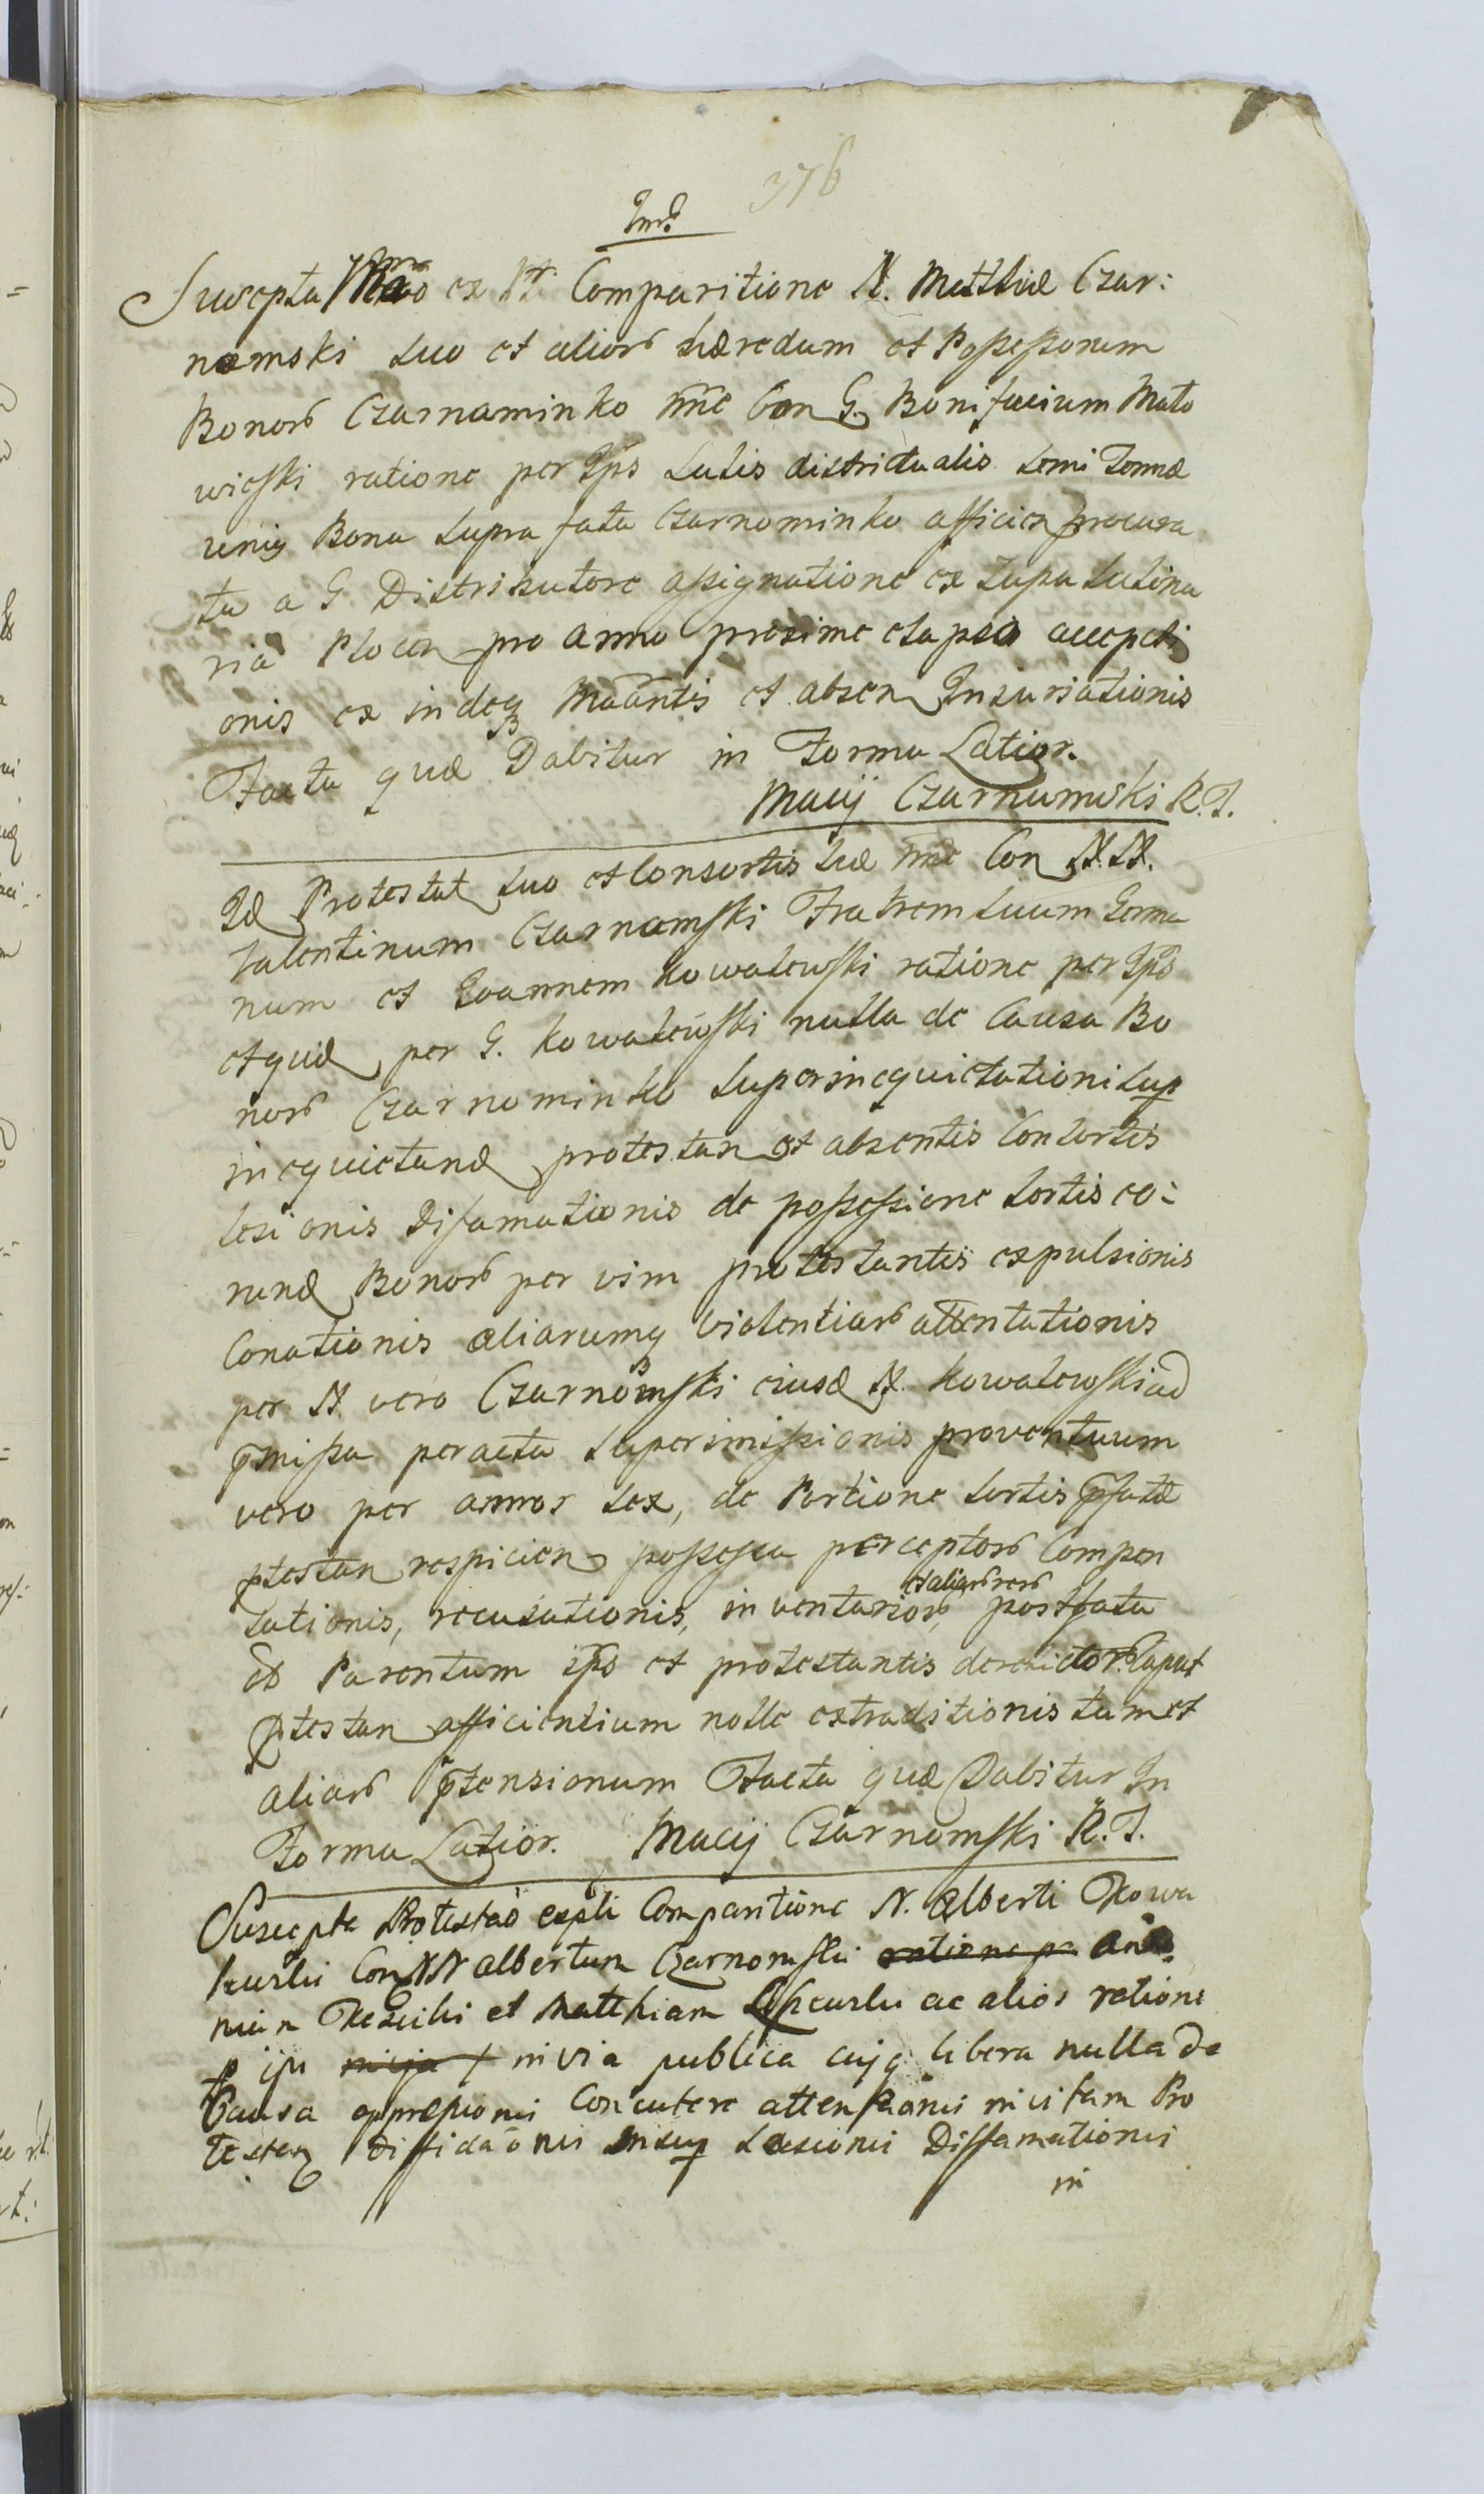 376
Suscepta ex Comparitione N. Matthiæ Czar:
nomski suo et alior hæredum et Possessorum
Bonor Czarnaminko nne Con G. Bonifacium Mato
wieski ratione per Ips Salis districtualis semi Tonnæ
unig Bona supra fata Czarnominko afficien procura
ta a G. Distributore assignatione ex Zupa Salina
ria Plocen pro anno proxime elapso accepti
onis ex indeq Maantis et absen Injuriationis
Facta quæ Dabitur in Forma Latior.
Macij Czarnumski R. T.
Id Protestat suo et Consortis suæ nne Con N. N.
Valentinum Czarnomski Fratrem suum Germa
num et Joannem Kowalewski ratione per Ips
et quid per G. Kowalewski nulla de Causa Bo
nor Czarnominko superinequietationi sup
inequietand protestan et absentis Consortis
lesionis Difamationis de possessione sortis eo:
rund Bonor per vim protestantis expulsionis
Conationis aliarumq violentiar attentationis
per N. vero Czarnomski eiusd N. Kowalewski ad
pmissa peracta superimissionis proventuum
vero per annos sex, de Portione sortis pfatæ
ptestan respicien possessa perceptor Compen
sationis, recusationis, inventarior, et aliar rer post fata
ab Parentum ips et protestantis derelictor Caput
ptestan afficientium nolle extraditionis tum et
aliar ptensionum Facta quæ Dabitur In
Forma Latior. Macij Czarnomski R. T.
Suscepta Protestao expli Comparitione N. Alberti Kowa
kuski Con NN Albertum Czarnomski ratione p
et Matthiam ac alios ratione
p ips in via publica cujq libera nulla de
Causa oppressionis Concutere attentaonis in vitam Pro
testan Diffidaonis insup Læsionis Diffamationis
in